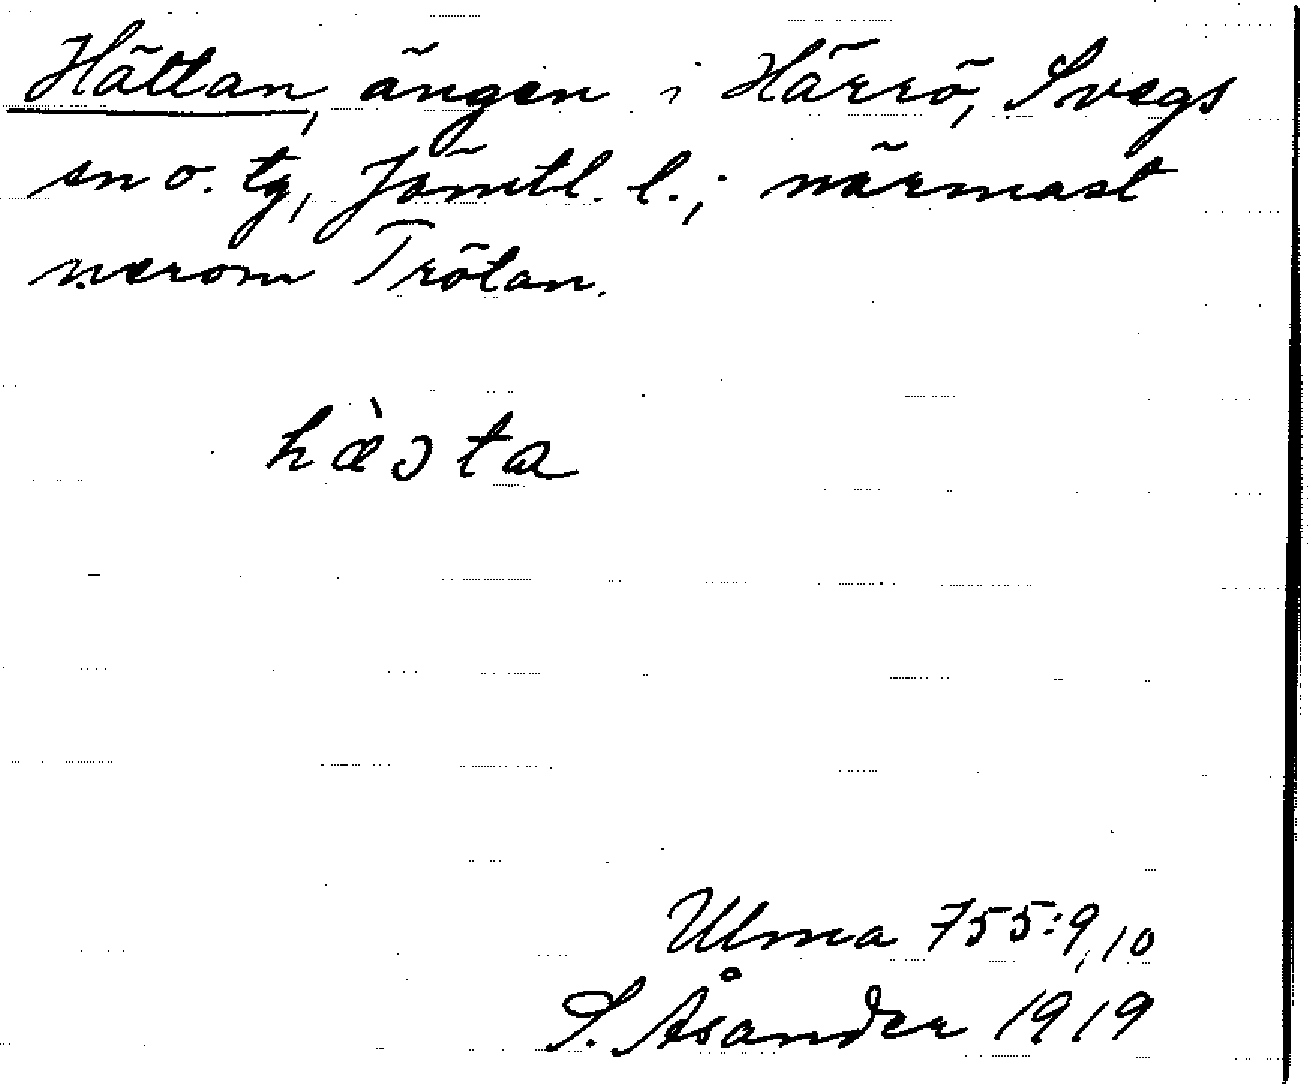 Hättan, ängen i Härrö, Svegs
sn o. tg, Jämtl. l.; närmast
nerom Trötan.
hæ̀ɔta
Ulma 755:9,10
S. Åsander 1919